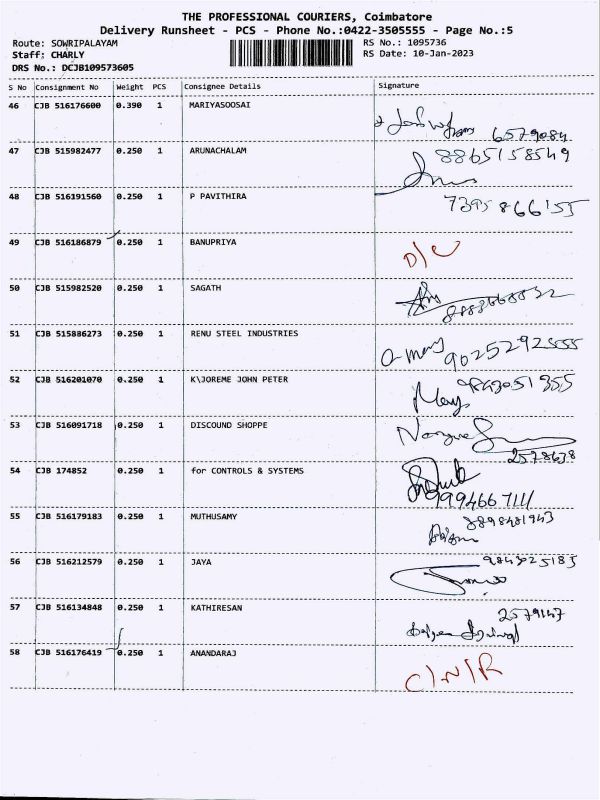 THE PROFESSIONAL COURIERS, Coimbatore
Delivery Runsheet - PCS - Phone No.:0422-3505555 - Page No.:5
Route: SOWRIPALAYAM RS No.: 1095736
Staff: CHARLY RS Date: 10-Jan-2023
DRS No.: DCJB109573605
S No Consignment No Weight PCS Consignee Details Signature
46 CJB 516176600 0.390 1 MARIYASOOSAI
6579084
47 CJB 515982477 0.250 1 ARUNACHALAM 8865158549
48 CJB 516191560 0.250 1 P PAVITHIRA 7395866155
49 CJB 516186879 0.250 1 BANUPRIYA D/C
50 CJB 515982520 0.250 1 SAGATH
51 CJB 515886273 0.250 1 RENU STEEL INDUSTRIES
9025292555
52 CJB 516201070 0.250 1 K\JOREME JOHN PETER 9843051355
53 CJB 516091718 0.250 1 DISCOUND SHOPPE
2578638
54 CJB 174852 0.250 1 for CONTROLS & SYSTEMS
9994667111
55 CJB 516179183 0.250 1 MUTHUSAMY 8898481943
56 CJB 516212579 0.250 1 JAYA 9843025185
57 CJB 516134848 0.250 1 KATHIRESAN 2579147
58 CJB 516176419 0.250 1 ANANDARAJ C/N/R